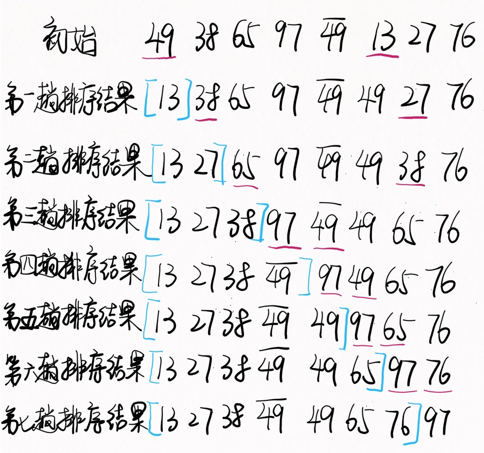 初始 49 38 65 97 4̅9̅ 13 27 76
第一趟排序结果 [13] 38 65 97 4̅9̅ 49 27 76
第二趟排序结果 [13 27] 65 97 4̅9̅ 49 38 76
第三趟排序结果 [13 27 38] 97 4̅9̅ 49 65 76
第四趟排序结果 [13 27 38 4̅9̅] 97 49 65 76
第五趟排序结果 [13 27 38 4̅9̅ 49] 97 65 76
第六趟排序结果 [13 27 38 4̅9̅ 49 65] 97 76
第七趟排序结果 [13 27 38 4̅9̅ 49 65 76] 97